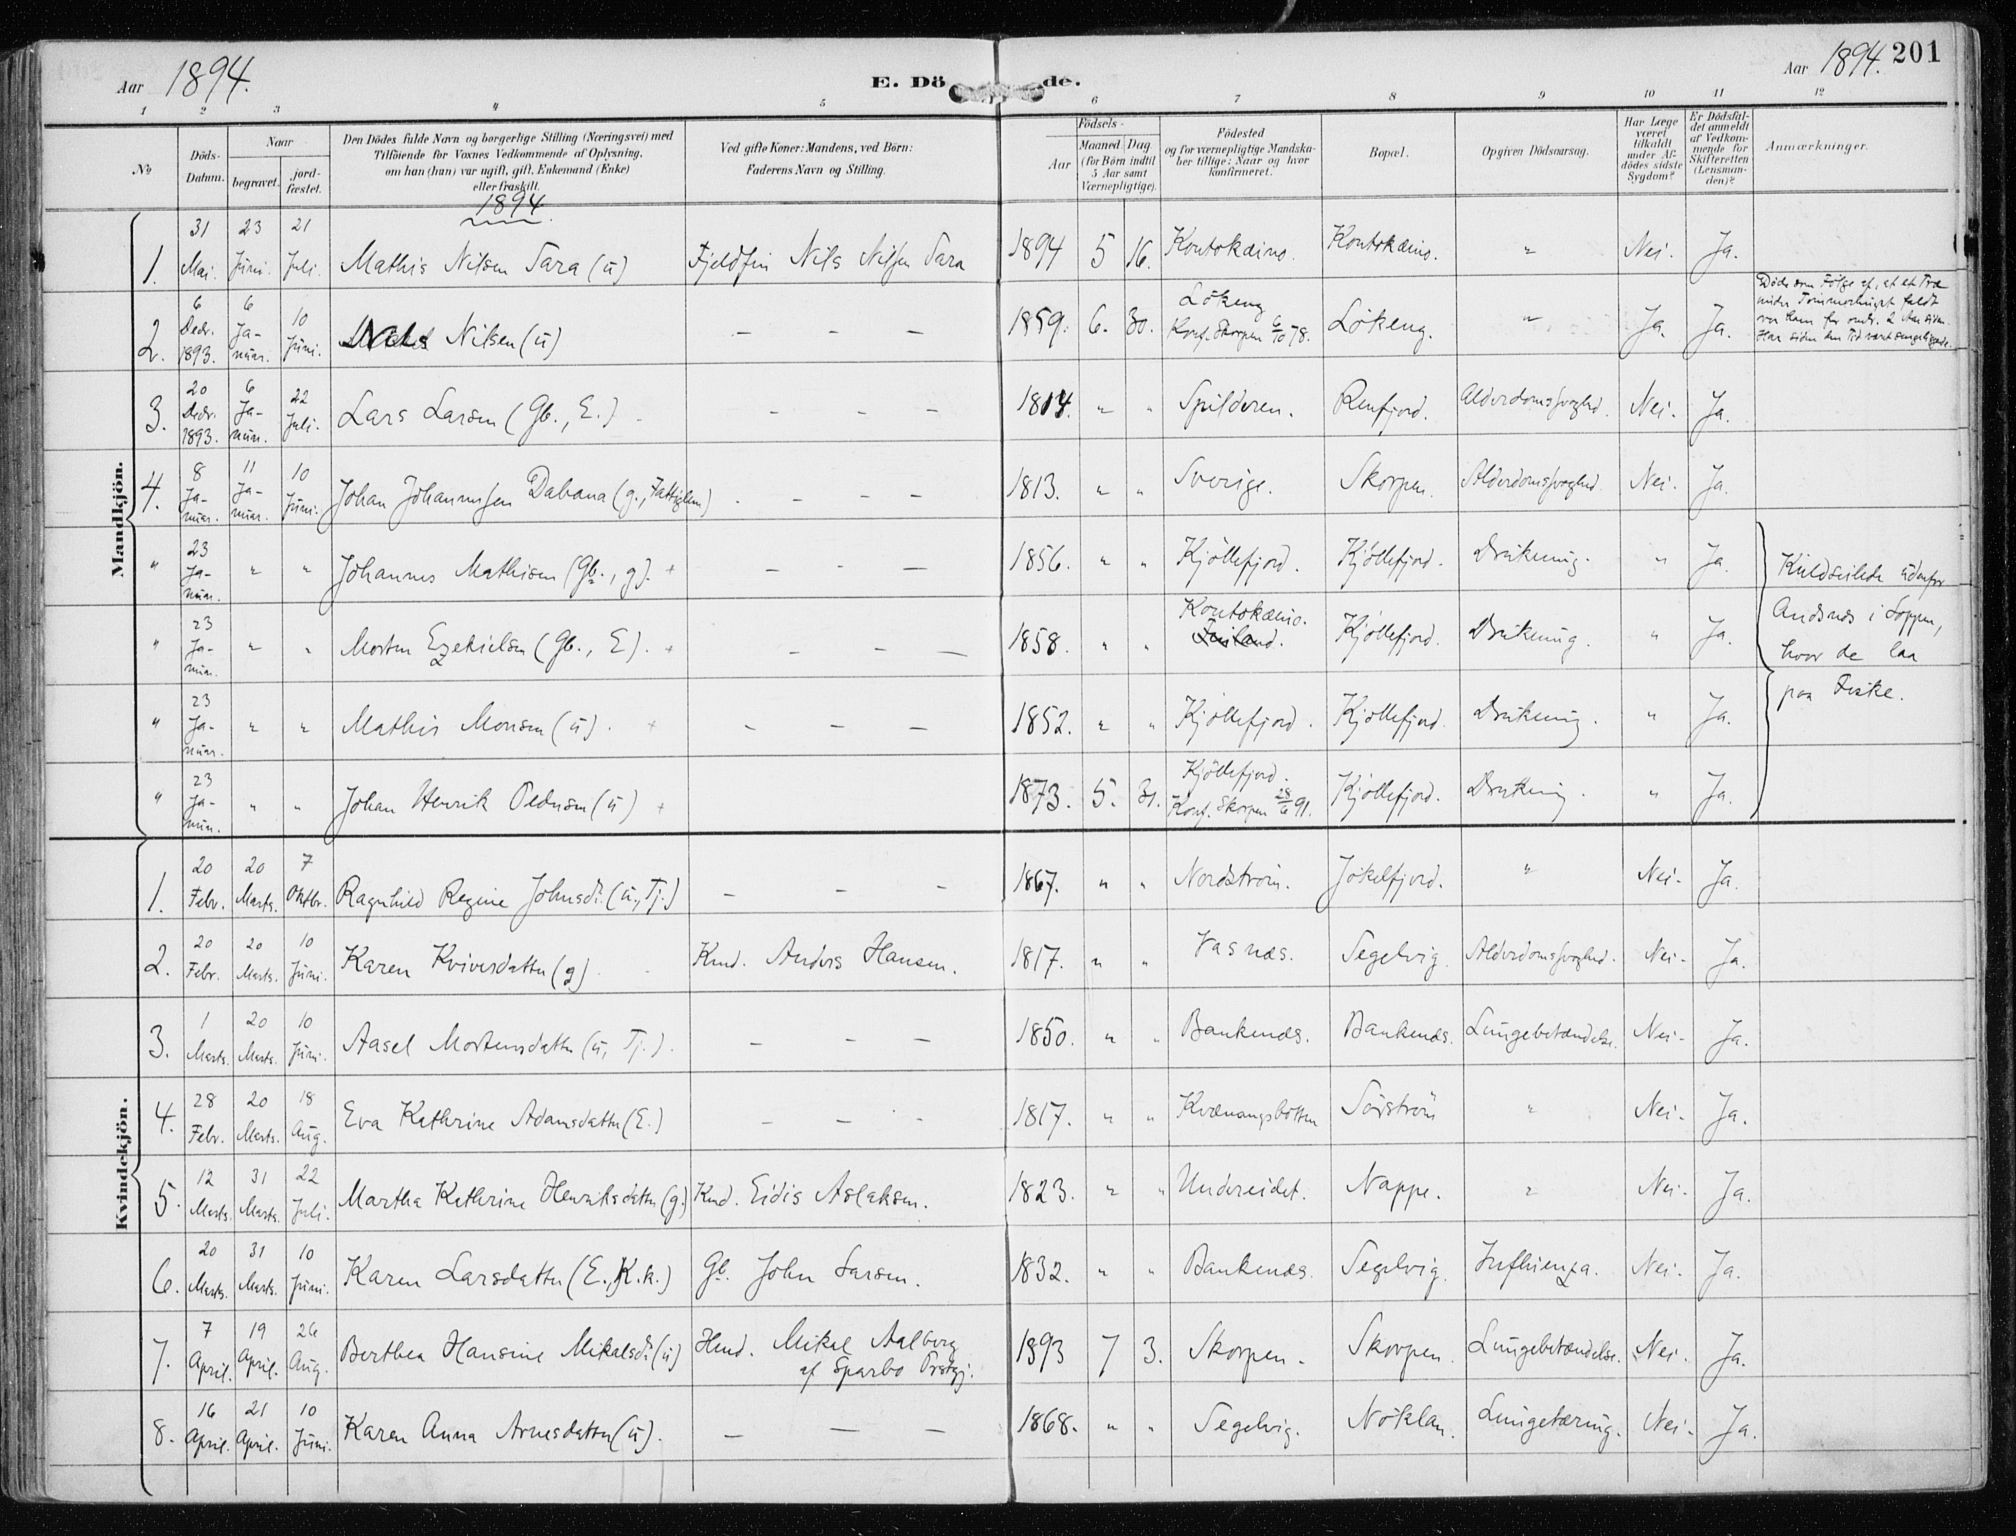 Aar 1894. E. Dö de. Aar 1894. 201
1 2 3 4 5 6 7 8 9 10 11 12
No
Döds-Datum.
Naar
begravet.
jord-fæstet.
Den Dödes fulde Navn og borgerlige Stilling (Næringsvei) med
Tilföiende for Voxnes Vedkommende af Oplysning,
om han (hun) var ugift, gift, Enkemand (Enke)
eller fraskilt.
Ved gifte Koner: Mandens, ved Börn:
Faderens Navn og Stilling.
Födsels-
Aar
Maaned Dag
(for Börn indtil
5 Aar samt
Værnepligtige).
Födested
og for værnepligtige Mandska-
ber tillige: Naar og hvor
konfirmeret.
Bopæl.
Opgiven Dödsaarsag.
Har Læge
været
tilkaldt
under Af-
dödes sidste
Sygdom?
Er Dödsfal-
det anmeldt
af Vedkom-
mende for
Skifteretten
(Lensman-
den)?
Anmærkninger.
1894.
Mandkjön.
1. 31 Mai. 23 Juni. 21 Juli. Mathis Nilsen Sara (u) Fjeldfin Nils Nilsen Sara 1894 5 16. Kontokæino. Kontokæino. " Nei. Ja.
2. 6 Decbr. 1893. 6 Januar. 10 Juni. Nils Nilsen (u) — — — 1859. 6. 30. Lökeng Konf. Skorpen 6/10 78. Lökeng. " Ja. Ja.
Döde som Følge af, at et Træ
under Tømmerhugst faldt
over ham for omtr. 2 Aar siden.
Har siden den Tid været sengeliggende.
3. 20 Decbr. 1893. 6 Januar. 22 Juli. Lars Larsen (Gb., E.) — — — 1814. " " Spilderen. Renfjord. Alderdomssvaghed. Nei. Ja.
4. 8 Januar. 11 Januar. 10 Juni. Johan Johannessen Dabana (g., Fattiglem) — — — — 1813. " " Sverige. Skorpen. Alderdomssvaghed. Nei. Ja.
" 23 Januar. " " Johannes Mathisen (Gb., g). + — — — 1856. " " Kjöllefjord. Kjöllefjord. Drukning. " Ja.
" 23 Januar. " " Morten Ezekielsen (Gb., E). + — — — 1858. " " Kontokæino. Finland. Kjöllefjord. Drukning. " Ja.
" 23 Januar. " " Mathis Monsen (u). + — — — 1852. " " Kjöllefjord. Kjöllefjord. Drukning. " Ja.
" 23 Januar. " " Johan Henrik Pedersen (u) + 1873. 5. 31. Kjöllefjord. Konf. Skorpen 28/6 91. Kjöllefjord. Drukning. " Ja.
Kuldseilede udenfor
Andsnes i Loppen,
hvor de laa
paa Fiske.
Kvindekjön.
1. 20 Febr. 20 Marts. 7 Oktbr. Ragnhild Regine Johnsdr. (u., Tj.) — — — 1867. " " Nordström. Jökelfjord. " Nei. Ja.
2. 20 Febr. 20 Marts. 10 Juni. Karen Kviversdatter (g) Kmd. Anders Hansen. 1817. " " Vasnæs. Segelvig. Alderdomssvaghed. Nei. Ja.
3. 1 Marts. 20 Marts. 10 Juni. Aasel Mortensdatter (u, Tj.). — — — 1850. " " Bankenæs. Bankenæs. Lungebetændelse. Nei. Ja.
4. 28 Febr. 20 Marts. 18 Aug. Eva Kathrine Adamsdatter (E.) — — — 1817. " " Kvænangsbotten Sörström " Nei. Ja.
5. 12 Marts. 31 Marts. 22 Juli. Martha Kathrine Henriksdatter (g.) Kmd. Eidis Aslaksen. 1823. " " Undereidet. Nappe. " Nei. Ja.
6. 20 Marts. 31 Marts. 10 Juni. Karen Larsdatter (E., K.k.) Gb. John Larsen. 1832. " " Bankenæs. Segelvig. Influenza. Nei. Ja.
7. 7 April. 19 April. 26 Aug. Berthea Hansine Mikalsdr. (u) Hmd. Mikal Aalberg af Sparbo Præstgj. 1893 7 3. Skorpen. Skorpen. Lungebetændelse. Nei. Ja.
8. 16 April. 21 April. 10 Juni. Karen Anna Arnesdatter (u). — — — 1868. " " Segelvig. Nöklan. Lungetæring. Nei. Ja.